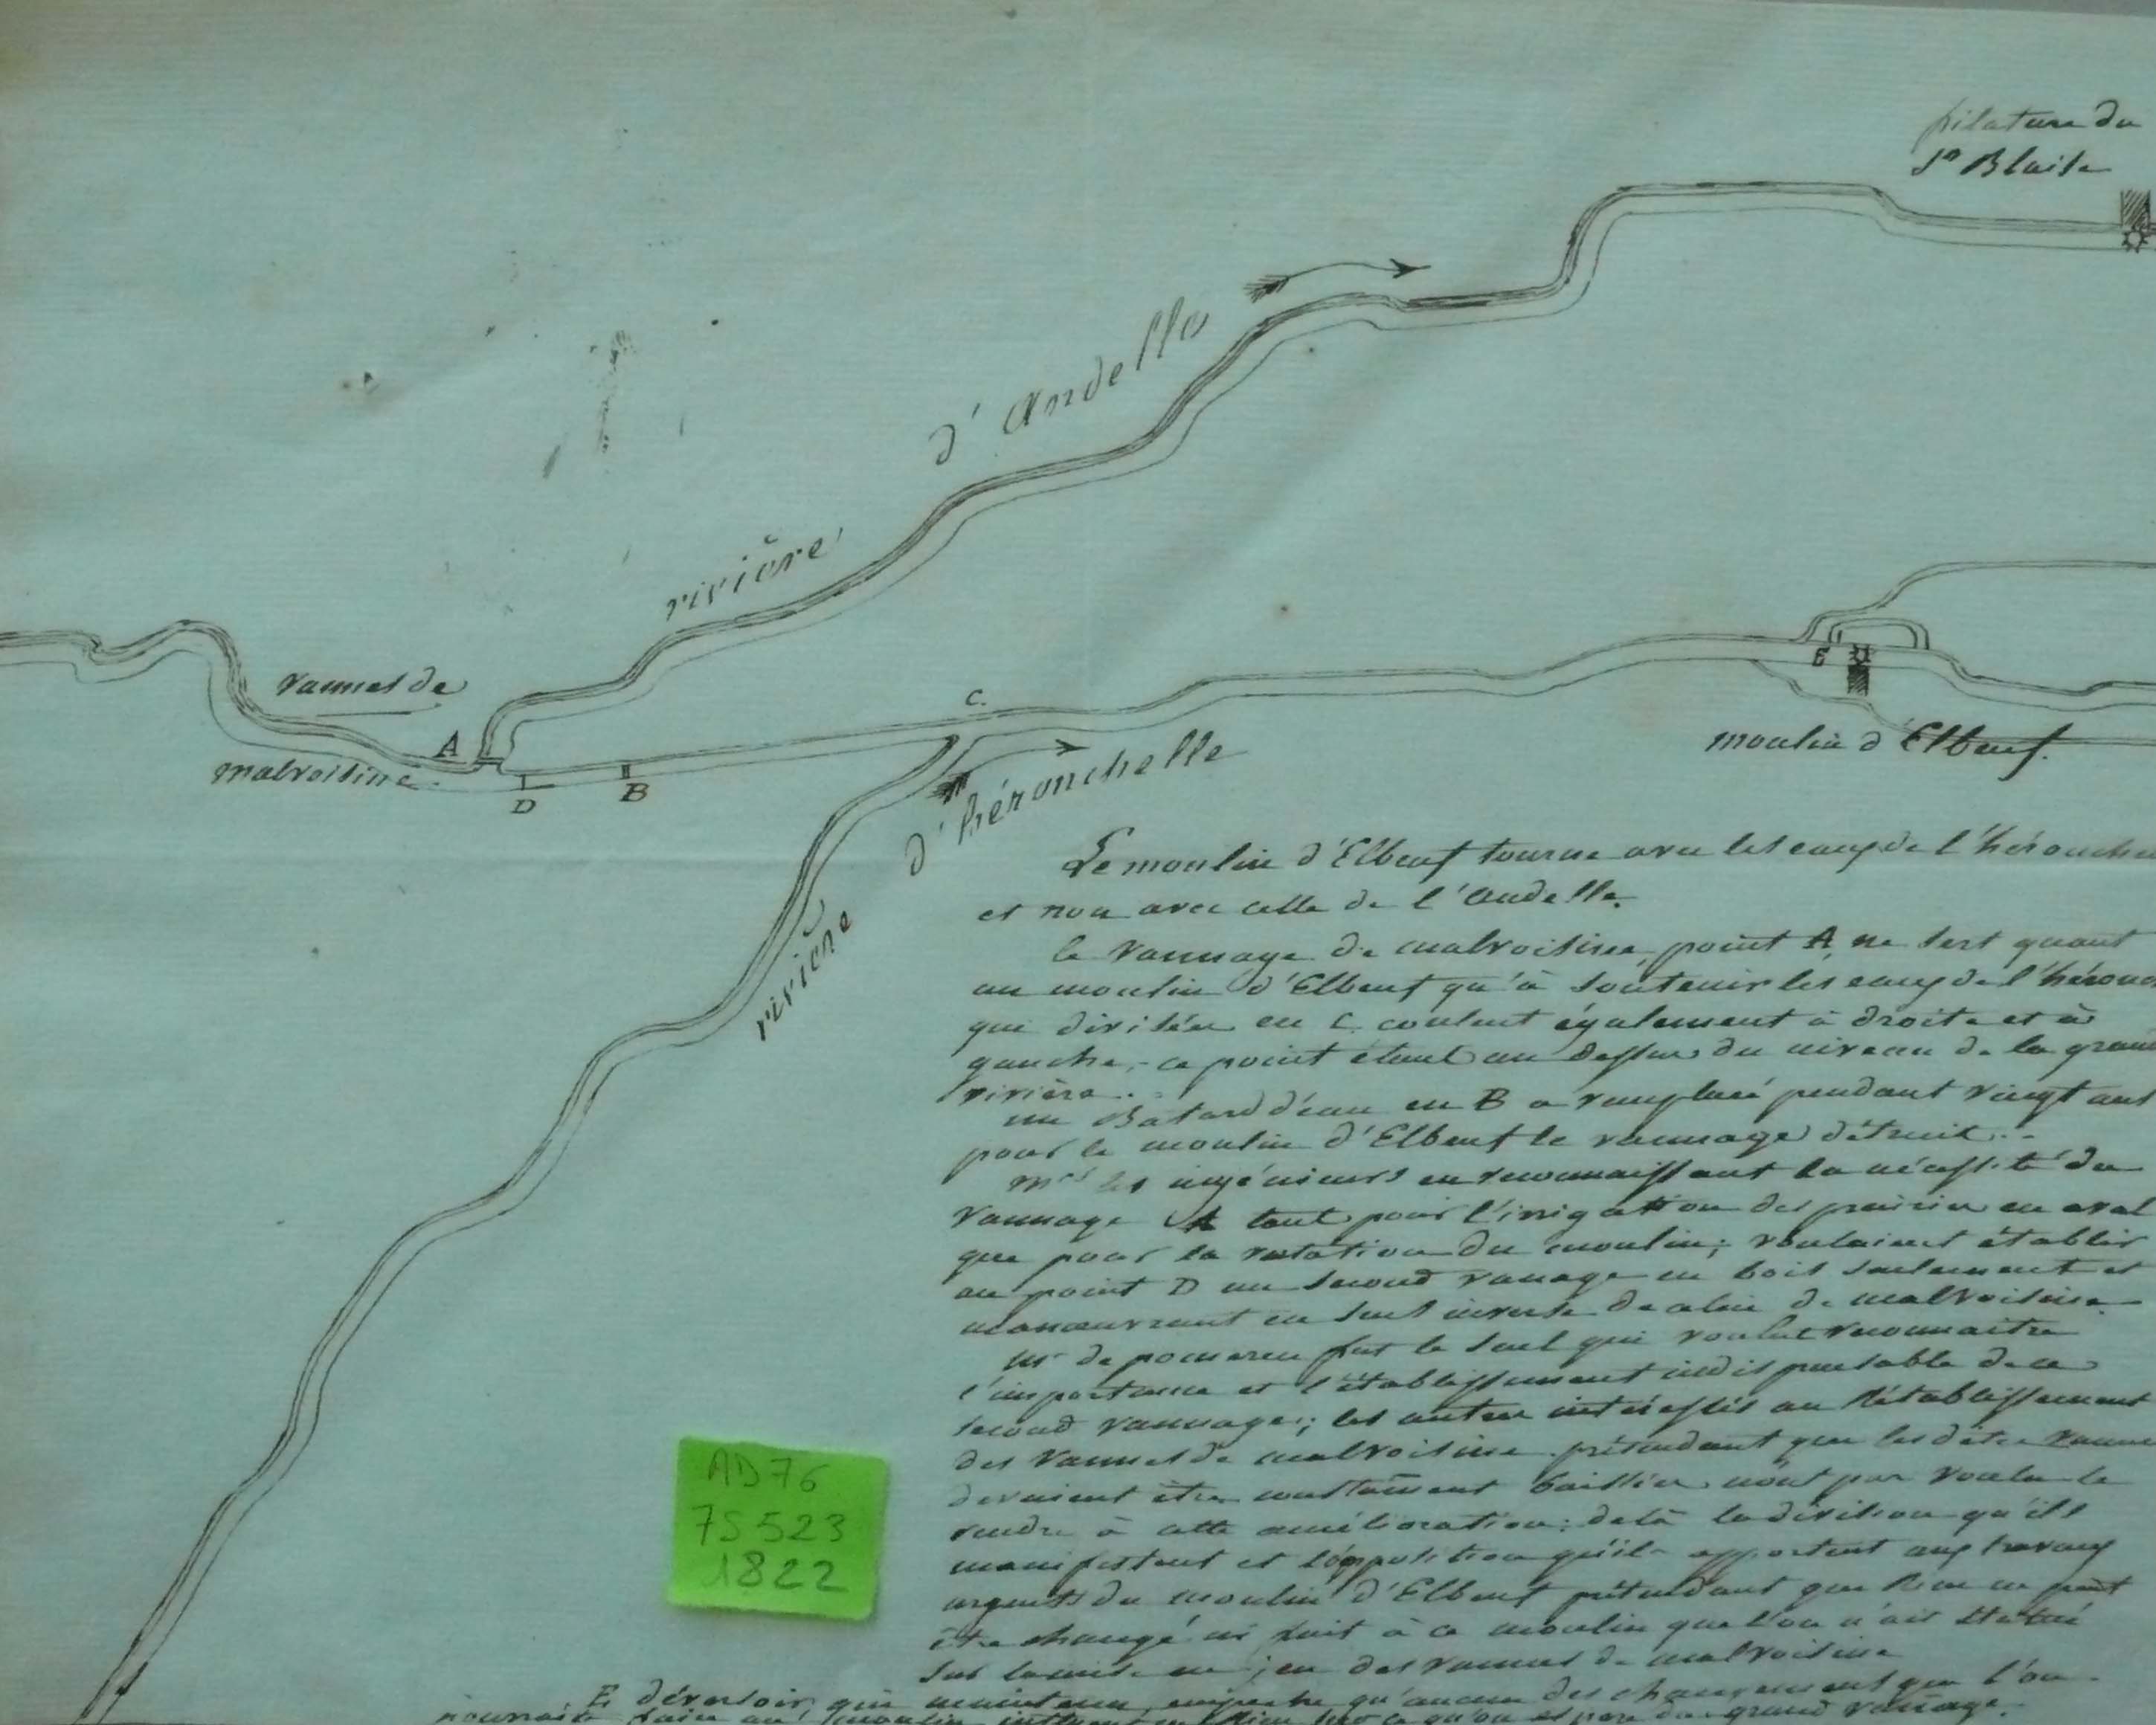 filature du
Sr Blaise
d'Andelle
rivière
vannes de
malvoisine.
A
D
B
C.
E
moulin d'Elbeuf.
d'héronchelle
rivière
Le moulin d'Elbeuf tourne avec les eaux de l'héronche
et non avec celle de l'Andelle.
le vannage de malvoisine, point A, ne sert quant
au moulin d'Elbeuf qu'à soutenir les eaux de l'héronc
qui divisées en C. coulent également à droite et à
gauche, ce point étant au dessus du niveau de la grand
rivière.
un Batardd'eau en B a remplacé pendant vingt ans
pour le moulin d'Elbeuf le vannage détruit.
Mrs les ingénieurs en reconnaissant la nécessité du
vannage A tant pour l'irrigation des prairies en aval
que pour la rotation du moulin; voulaient établir
au point D un second vanage en bois seulement et
manœuvrant en sens inverse de celui de malvoisine.
Mr de pomereu fut le seul qui voulut reconnaitre
l'importance et l'établissement indispensable de ce
second vannage; les autres intéressés au Rétablissement
des vannes de malvoisine prétendant que les dites vannes
devraient être constament baissées n'ont pas voulu se
rendre à cette amélioration: delà la division qu'ils
manifestent et l'opposition qu'ils apportent aux travaux
urgents du moulin d'Elbeuf prétendant que Rien ne peut
être changé ni fait à ce moulin que l'on n'ait statué
sur la mise en jeu des vannes de malvoisine
E, déversoir qui maintenu, empeche qu'aucun des changements que l'on
pourrait faire au moulin, en Rien sur ce qu'on du grand vannage.
AD76
7S523
1822